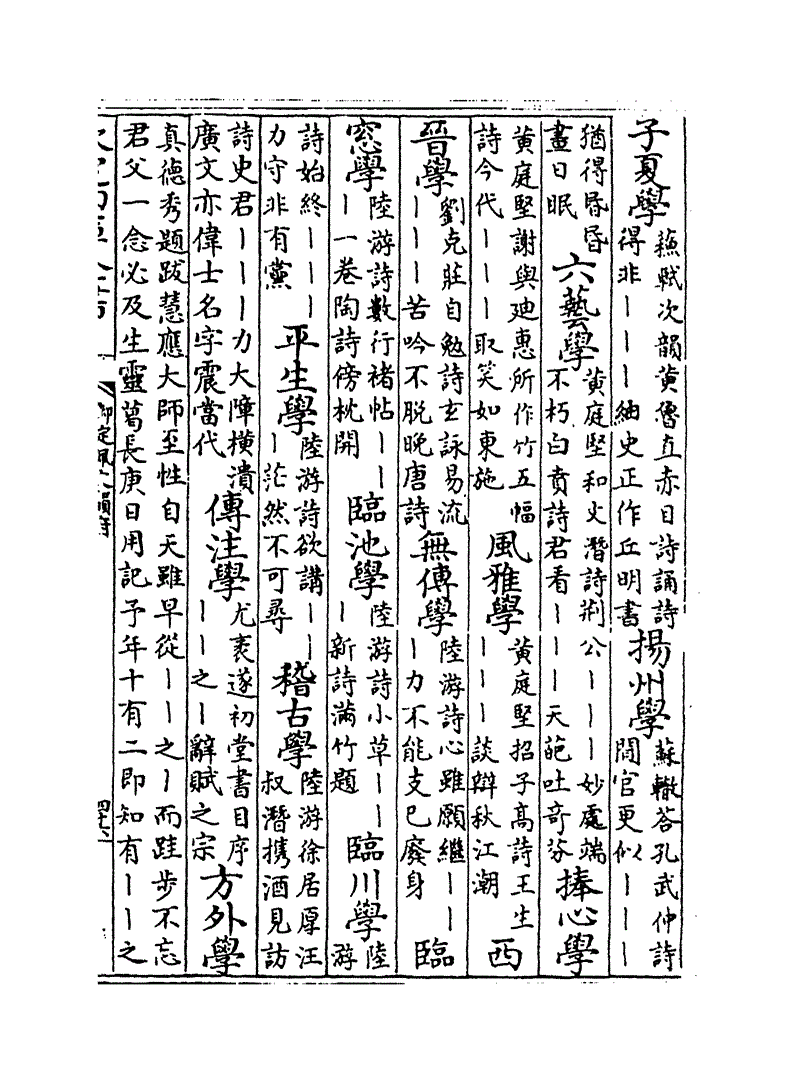 子夏學 蘇軾次韻黃魯直赤目詩誦詩得非〡〡〡紬史正作丘明書 揚州學 蘇轍荅孔武仲詩閒官更似〡〡〡
猶得昏昏晝日眠 六藝學 黃庭堅和文潛詩荆公〡〡〡妙處端不朽白賁詩君看〡〡〡天葩吐奇芬 捧心學
黃庭堅謝與廸惠所作竹五幅詩今代〡〡〡取笑如東施 風雅學 黃庭堅招子高詩王生〡〡〡談辯秋江潮 西
晉學 劉克莊自勉詩玄詠易流〡〡〡苦吟不脫晚唐詩 無傳學 陸游詩心雖願繼〡〡〡力不能支已廢身 臨
窓學 陸游詩數行褚帖〡〡〡一卷陶詩傍枕開 臨池學 陸游詩小草〡〡〡新詩滿竹題 臨川學 陸游
詩始終〡〡〡力守非有黨 平生學 陸游詩欲講〡〡〡茫然不可尋 稽古學 陸游徐居厚汪叔潛攜酒見訪
詩史君〡〡〡力大障橫潰廣文亦偉士名字震當代 傳注學 尤袤遂初堂書目序〡〡之〡辭賦之宗 方外學
真德秀題跋慧應大師至性自天雖早從〡〡之〡而跬步不忘君父一念必及生靈葛長庚日用記予年十有二即知有〡〡之
御定佩文韻府